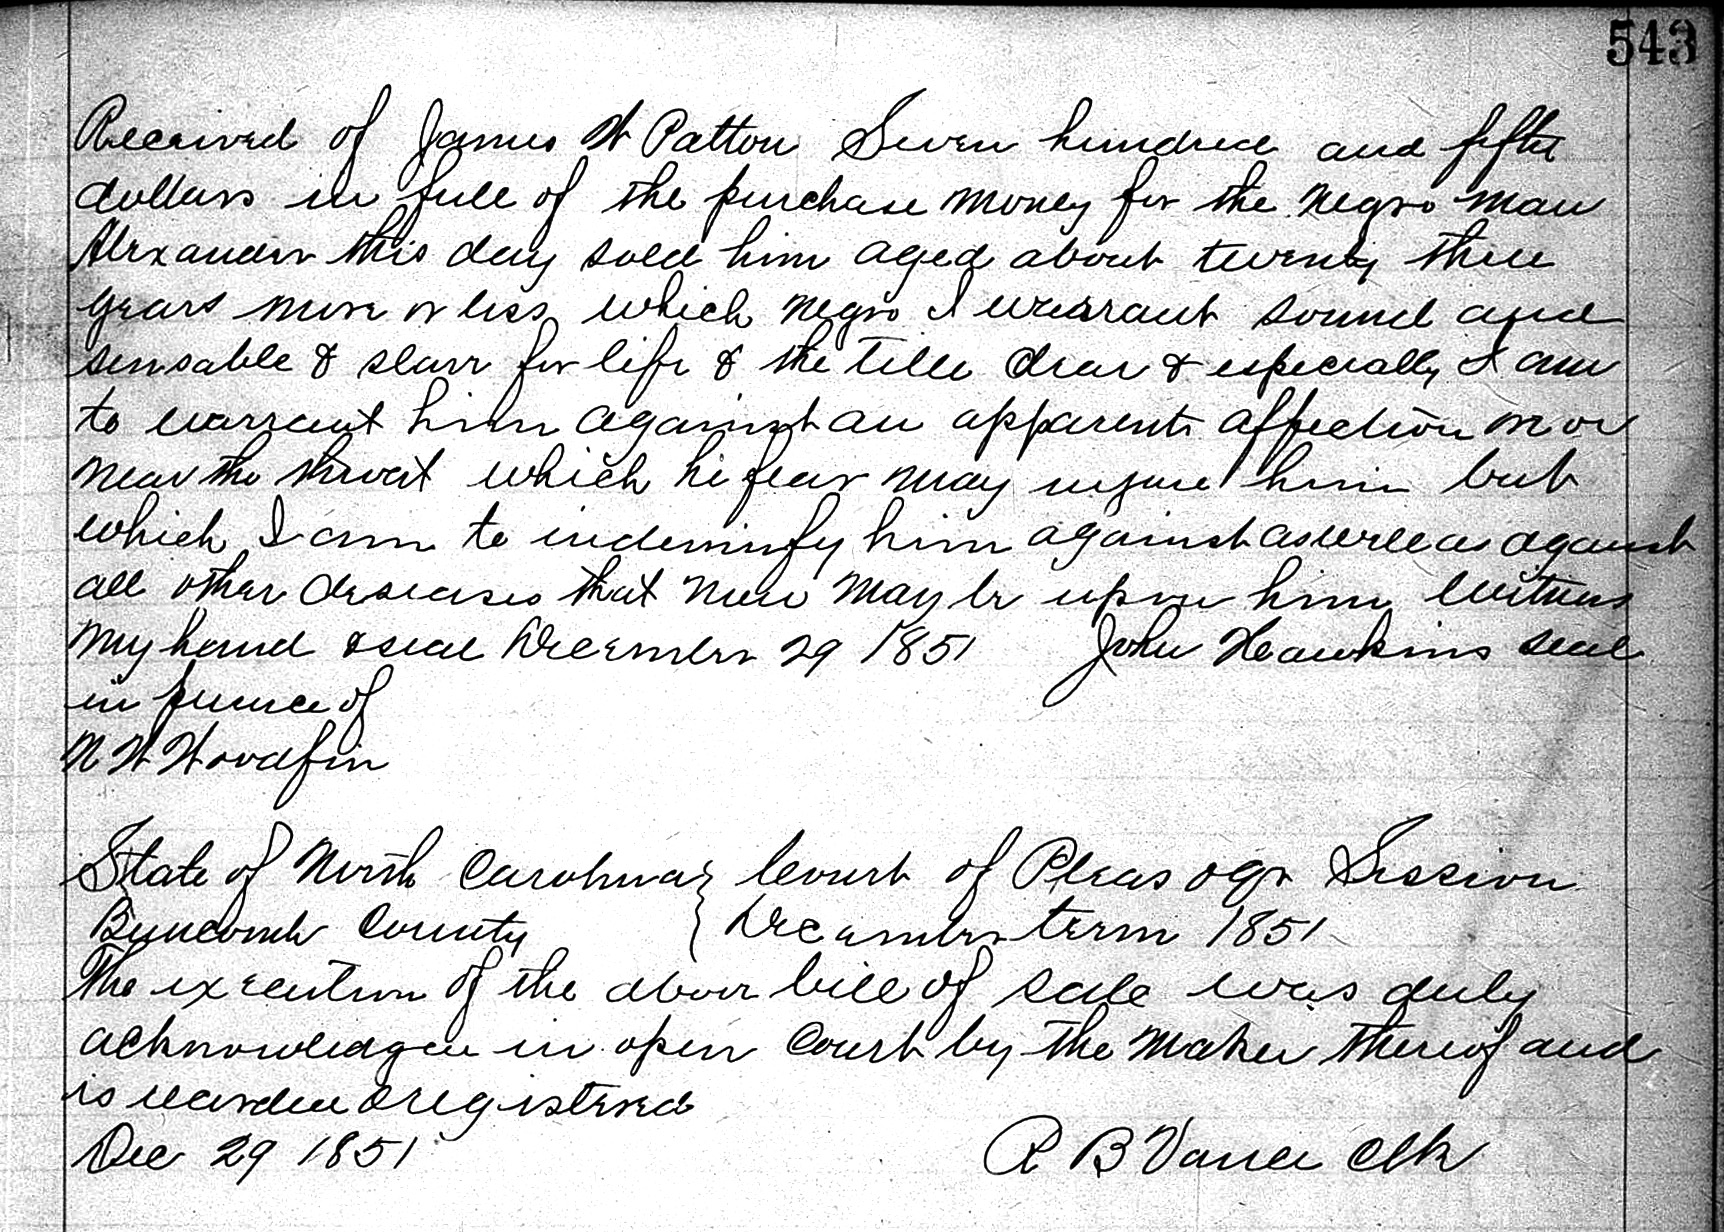 543
Received of James W Patton Seven hundred and fifty
dollars in full of the purchase money for the negro man
Alexander this day sold him aged about twenty three
years more or less which negro I warrant sound and
sensable & slave for life & the title clear & especially I am
to warrant him against an apparent affection on or
near the throat which he fear may injure him but
which I am to indemnify him against as well as against
all other deseases that now may be upon him Witness
my hand & seal December 29 1851 John Hawkins seal
in presence of
N W Woodfin
State of North Carolina } Court of Pleas & Session
Buncomb County } December term 1851
The execution of the above bill of sale was duly
acknowledged in open Court by the maker thereof and
is registered
Dec 29 1851 R B Vance Clk